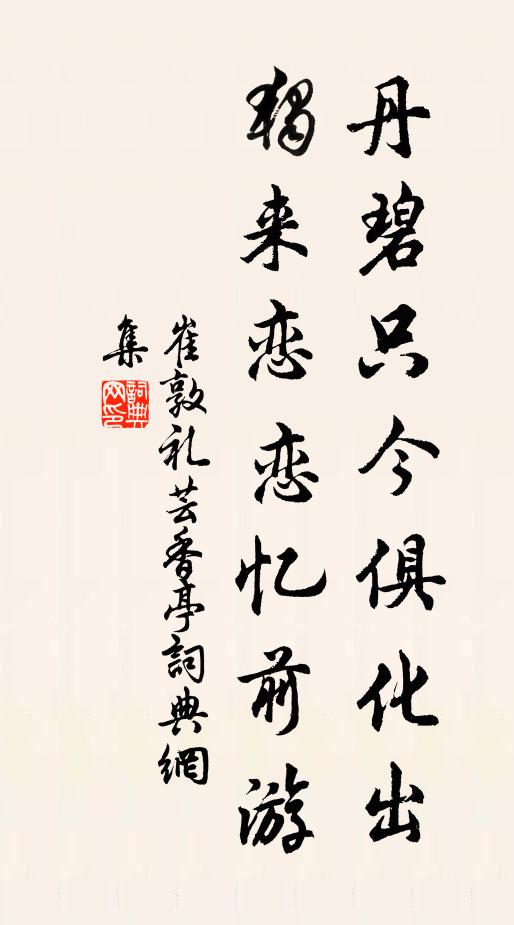 丹碧只今俱化出
独来恋恋忆前游
崔敦礼芸香亭詞典網
集
詞典網印